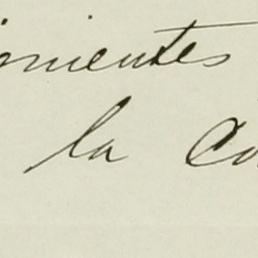 nientes
la Co